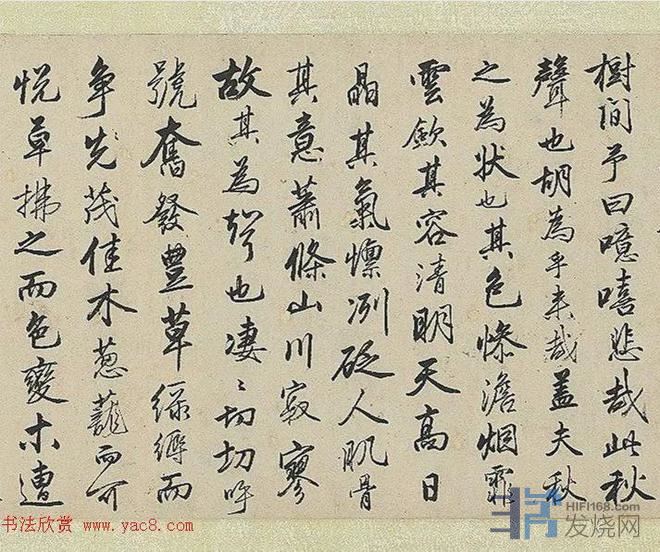 樹間予曰噫嘻悲哉此秋
聲也胡為乎来哉盖夫秋
之為状也其色惨澹烟霏
雲歛其容清明天高日
晶其氣慄冽砭人肌骨
其意蕭條山川寂寥
故其為聲也凄〻切切呼
號奮發豊草緑縟而
争先茂佳木葱蘢而可
悦草拂之而色變木遭
书法欣赏 www.yac8.com
HIFI168.com
发烧网